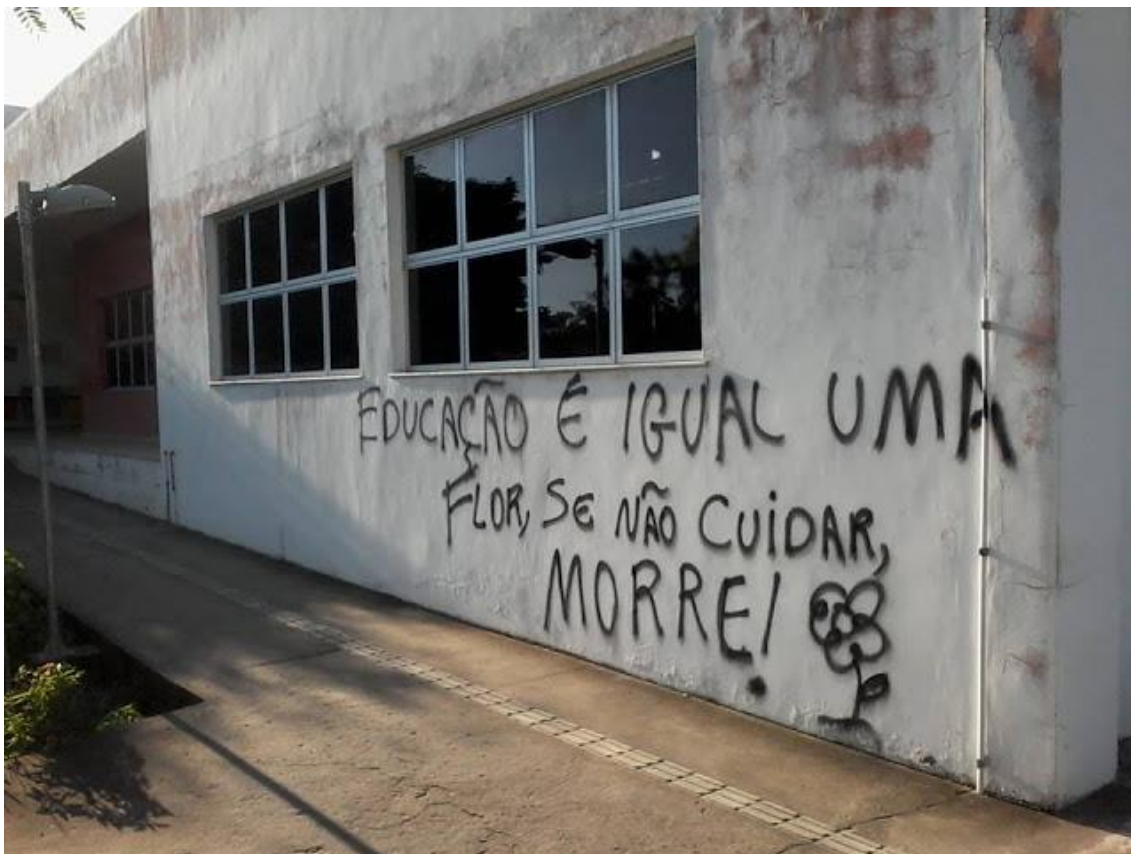 EDUCAÇÃO É IGUAL UMA
FLOR, SE NÃO CUIDAR,
MORRE!